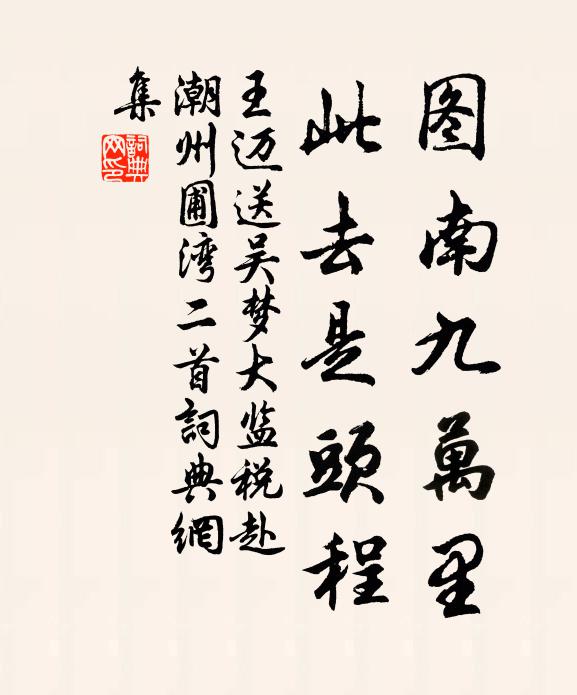 图南九萬里
此去是頭程
王迈送吴梦大监税赴
潮州圃湾二首詞典網
集
詞典
网印